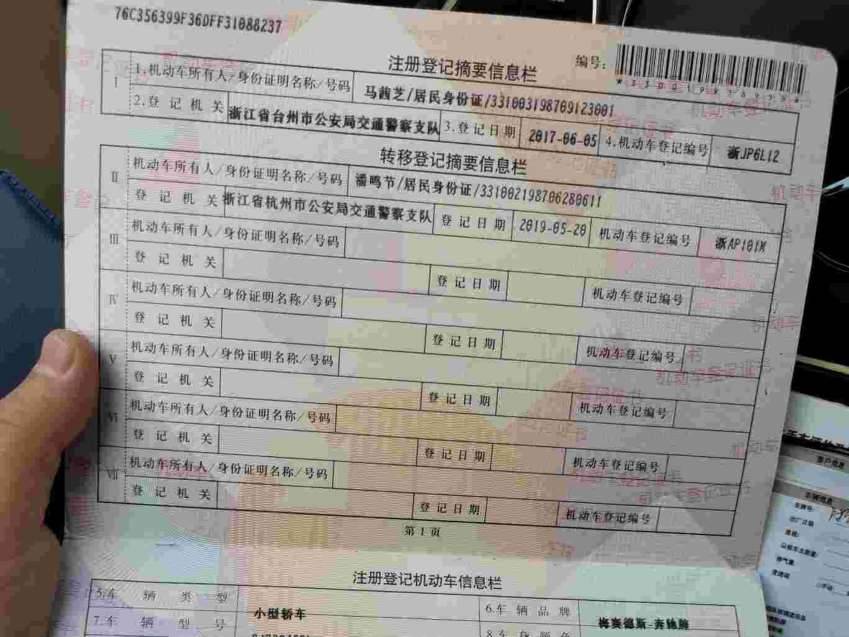 76C356399F36DFF31088237
注册登记摘要信息栏
编号:
I 1.机动车所有人/身份证明名称/号码 马茜芝/居民身份证/331003198709123001
2.登记机关 浙江省台州市公安局交通警察支队 3.登记日期 2017-06-05 4.机动车登记编号 浙JP6L12
转移登记摘要信息栏
II 机动车所有人/身份证明名称/号码 潘鸣节/居民身份证/331002198706280611
登记机关 浙江省杭州市公安局交通警察支队 登记日期 2019-05-20 机动车登记编号 浙AP101M
III 机动车所有人/身份证明名称/号码
登记机关 登记日期 机动车登记编号
IV 机动车所有人/身份证明名称/号码
登记机关 登记日期 机动车登记编号
V 机动车所有人/身份证明名称/号码
登记机关 登记日期 机动车登记编号
VI 机动车所有人/身份证明名称/号码
登记机关 登记日期 机动车登记编号
VII 机动车所有人/身份证明名称/号码
登记机关 登记日期 机动车登记编号
第1页
注册登记机动车信息栏
5.车辆类型 小型轿车 6.车辆品牌 梅赛德斯-奔驰牌
7.车辆型号